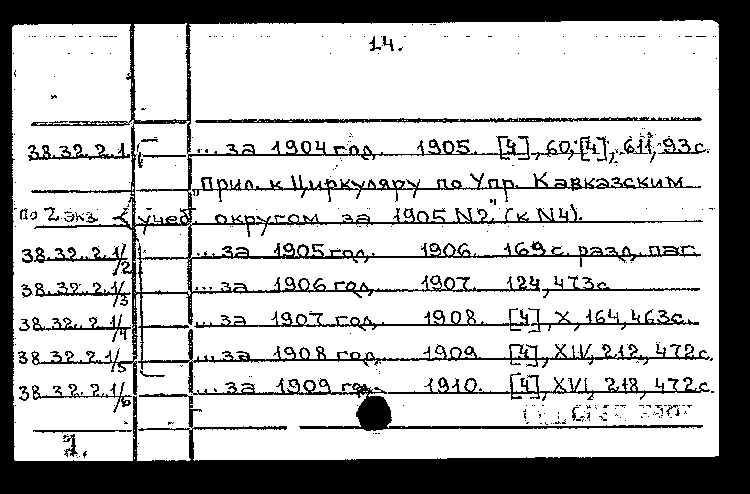 14.
38.32.2.1 ... за 1904 год. 1905. [4], 60, [4], 611, 93 с.
"Прил. к Циркуляру по Упр. Кавказским
по 2 экз учеб. округом за 1905 N2." (к N4).
38.32.2.1/2 ... за 1905 год. 1906. 169 с. разд. паг.
38.32.2.1/3 ... за 1906 год. 1907. 124, 473 с
38.32.2.1/4 ... за 1907 год. 1908. [4], X, 164, 463 с.
38.32.2.1/5 ... за 1908 год. 1909. [4], XIV, 212, 472 с.
38.32.2.1/6 ... за 1909 год. 1910. [4], XVI, 218, 472 с.
1.